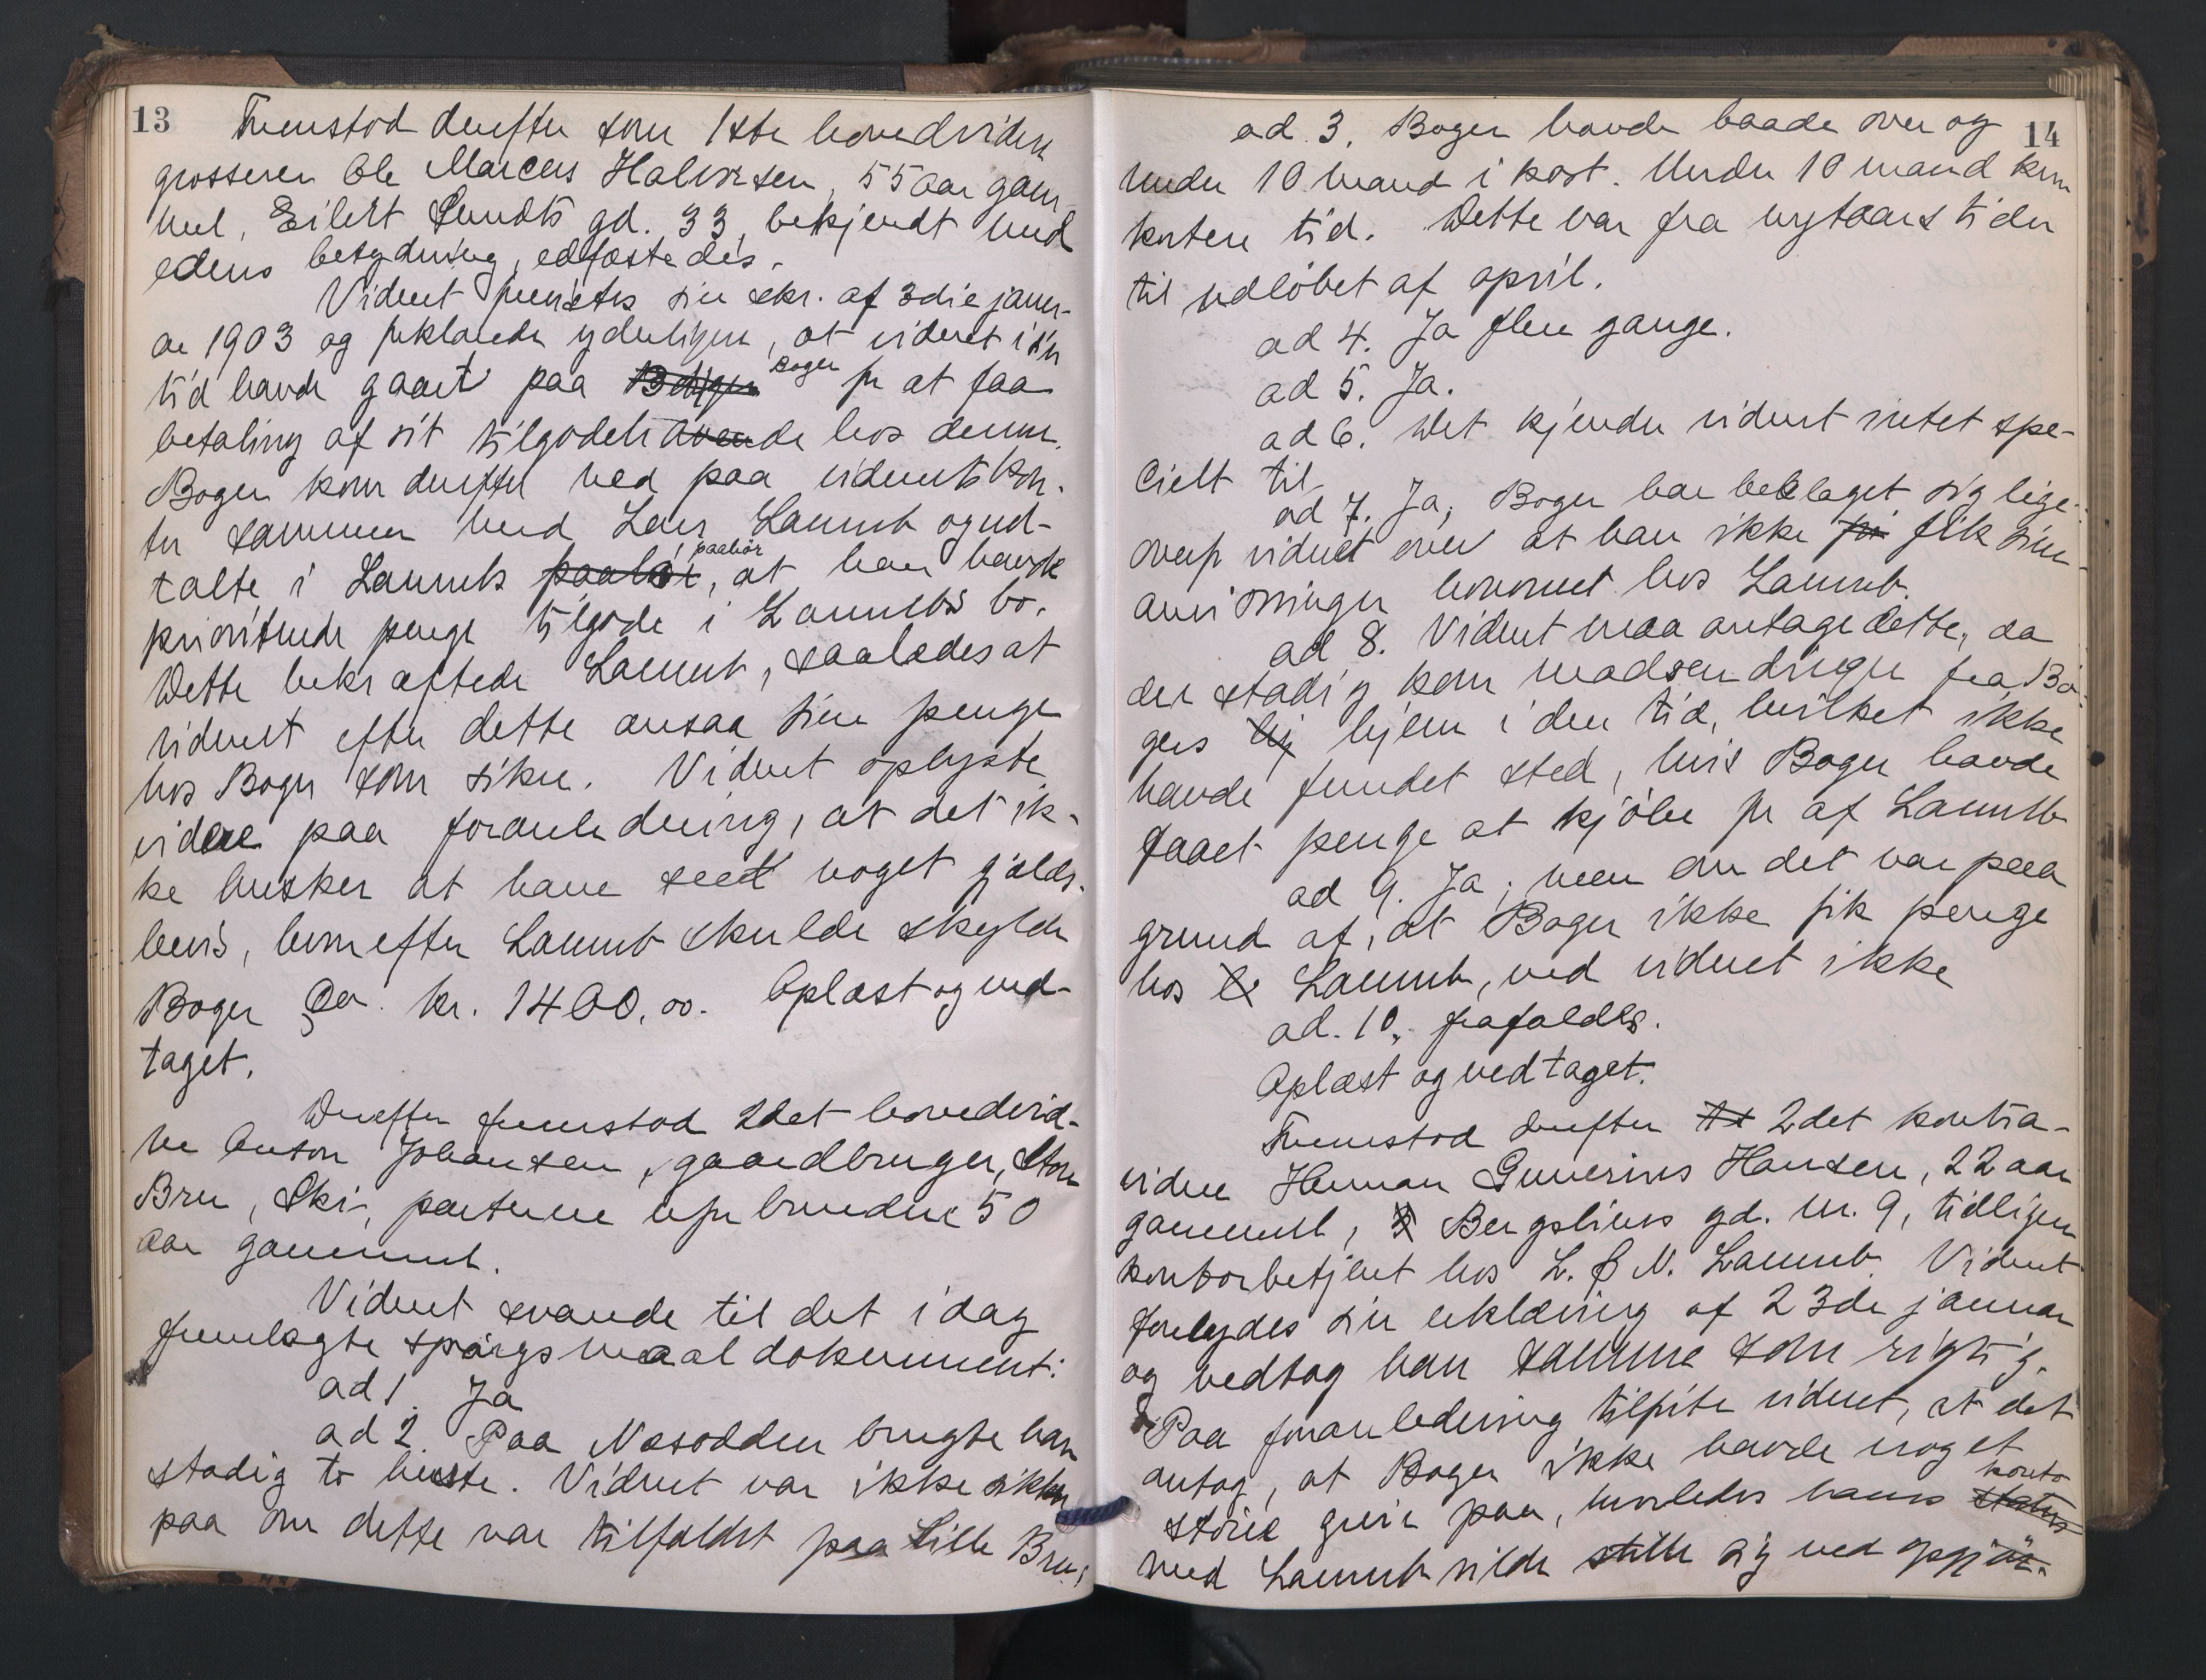 13
Fremstod derefter som 1ste hovedvidne
grosserer Ole Marcus Halvorsen, 55 aar gam-
mel, Eilert Sundts gd. 33, bekjendt med
edens betydning, edfæstedes.
Vidnet fremsatte sin skr. af 3die janu-
ar 1903 og forklarede yderligere, at vidnet i sin
tid havde gaaet paa Böiger Boger for at faa
betaling af sit tilgodehavende hos denne.
Boger kom derefter ned paa vidnets kon-
tor sammen med Lars Laumb og ud-
talte i Laumbs paahör paahör, at han havde
prioriterede penge tilgode i Laumbs bo.
Dette bekræftede Laumb, saaledes at
vidnet efter dette ansaa sine penge
hos Boger som sikre. Vidnet oplyste
videre paa foranledning, at det ik-
ke husker at have seet noget gjælds-
bevis, hvorefter Laumb skulde skylde
Boger Ca. kr. 1400,00. Oplæst og ved-
taget.
Derefter fremstod 2det hovedvid-
ne Anton Johansen, gaardbruger, Store
Bru, Ski, parterne uforbundne 50
aar gammel.
Vidnet svarede til det i dag
fremlagte spörgsmaalsdokument:
ad 1. Ja
ad 2. Paa Næsodden brugte han
stadig to heste. Vidnet var ikke sikker
paa om dette var tilfældet paa Lille Bru,
14
ad 3. Boger havde baade over og
under 10 mand i kost. Under 10 mand kun
kortere tid. Dette var fra nytaars tider
til udlöbet af april.
ad 4. Ja flere gange.
ad 5. Ja.
ad 6. Det kjender vidnet intet spe-
cielt til
ad 7. Ja, Boger har beklaget sig lige-
overfor vidnet over at han ikke fik sine
anvisninger honoreret hos Laumb.
ad 8. Vidnet maa antage dette, da
der stadig kom madsendinger fra Bo-
gers hj hjem i den tid, hvilket ikke
havde fundet sted, hvis Boger havde
faaet penge at kjöbe for af Laumb
ad 9. Ja; men om det var paa
grund af, at Boger ikke fik penge
hos L Laumb, ved vidnet ikke
ad. 10. frafaldes.
Oplæst og vedtaget.
Fremstod derefter 2det kontra-
vidne Herman Gunerius Hansen, 22 aar
gammel, Bergsliens gd. nr. 9, tidligere
kontorbetjent hos L. & N. Laumb. Vidnet
forelagdes sin erklæring af 23de januar
og vedtog han samme som rigtig.
Paa foranledning tilföite vidnet, at det
antog, at Boger ikke havde noget
större greie paa, hvorledes hans status konto
med Laumb vilde stille sig ved opgjör-